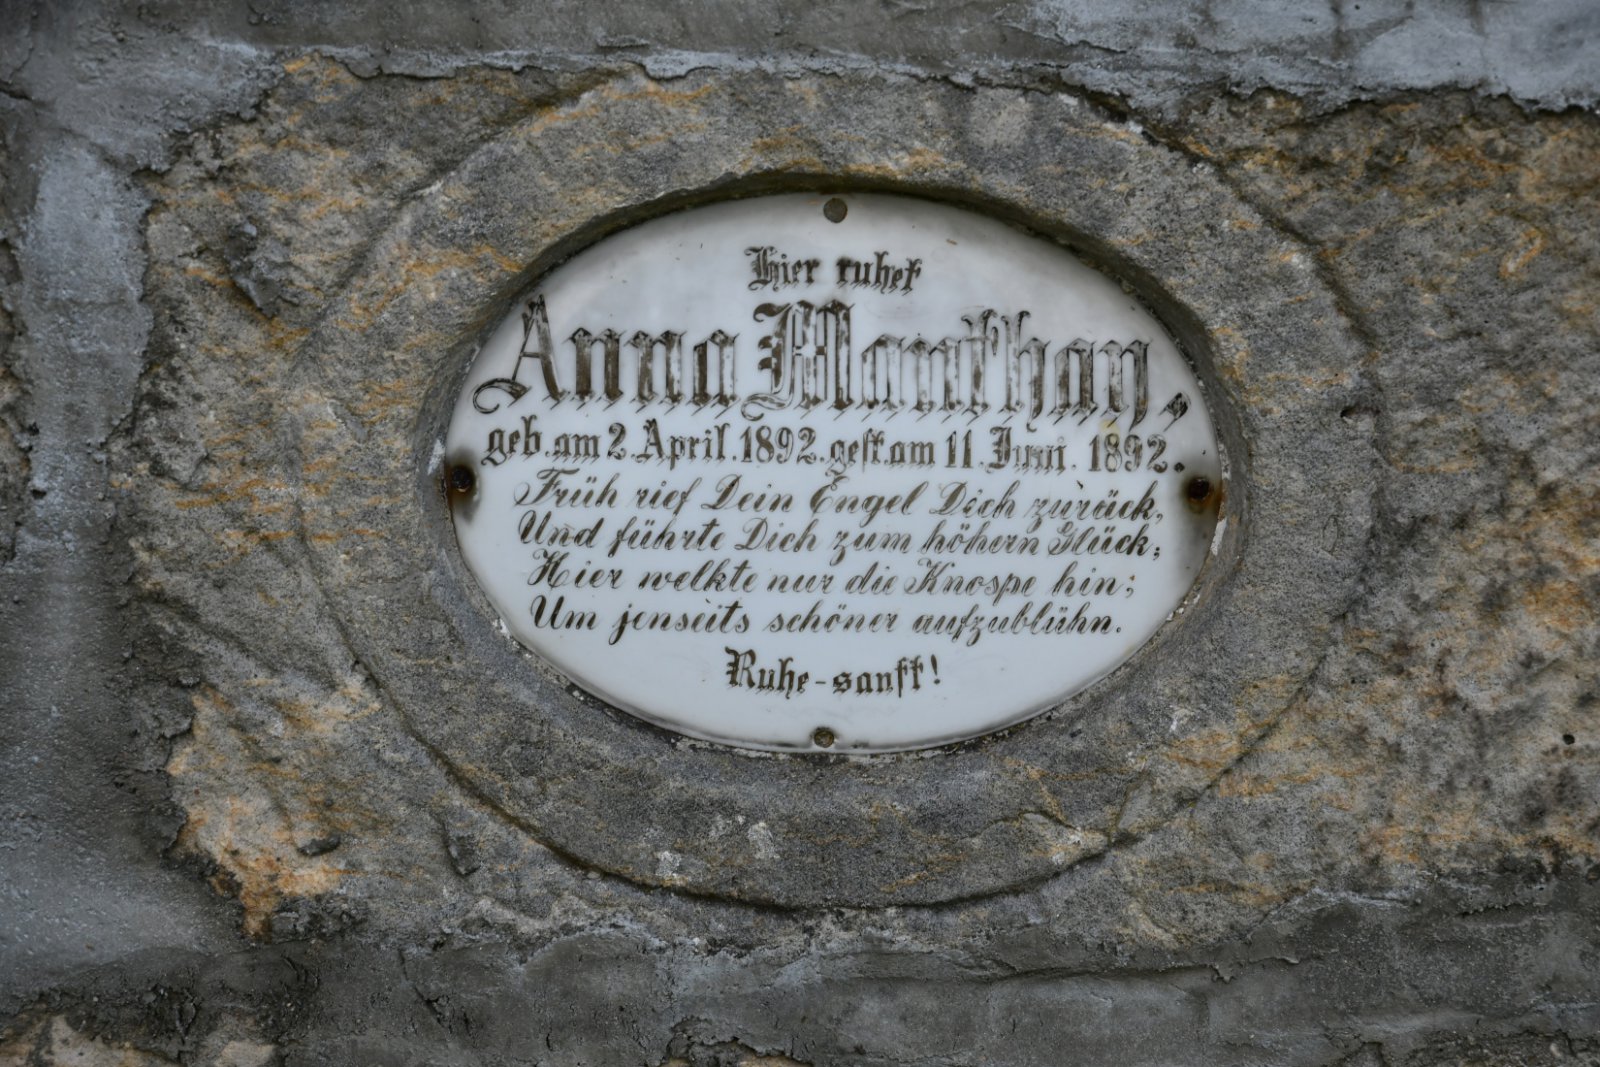 Hier ruhet
Anna Manthay,
geb. am 2. April. 1892. gest. am 11. Juni. 1892.
Früh rief Dein Engel Dich zurück,
Und führte Dich zum höhern Glück;
Hier welkte nur die Knospe hin;
Um jenseits schöner aufzublühn.
Ruhe-sanft!